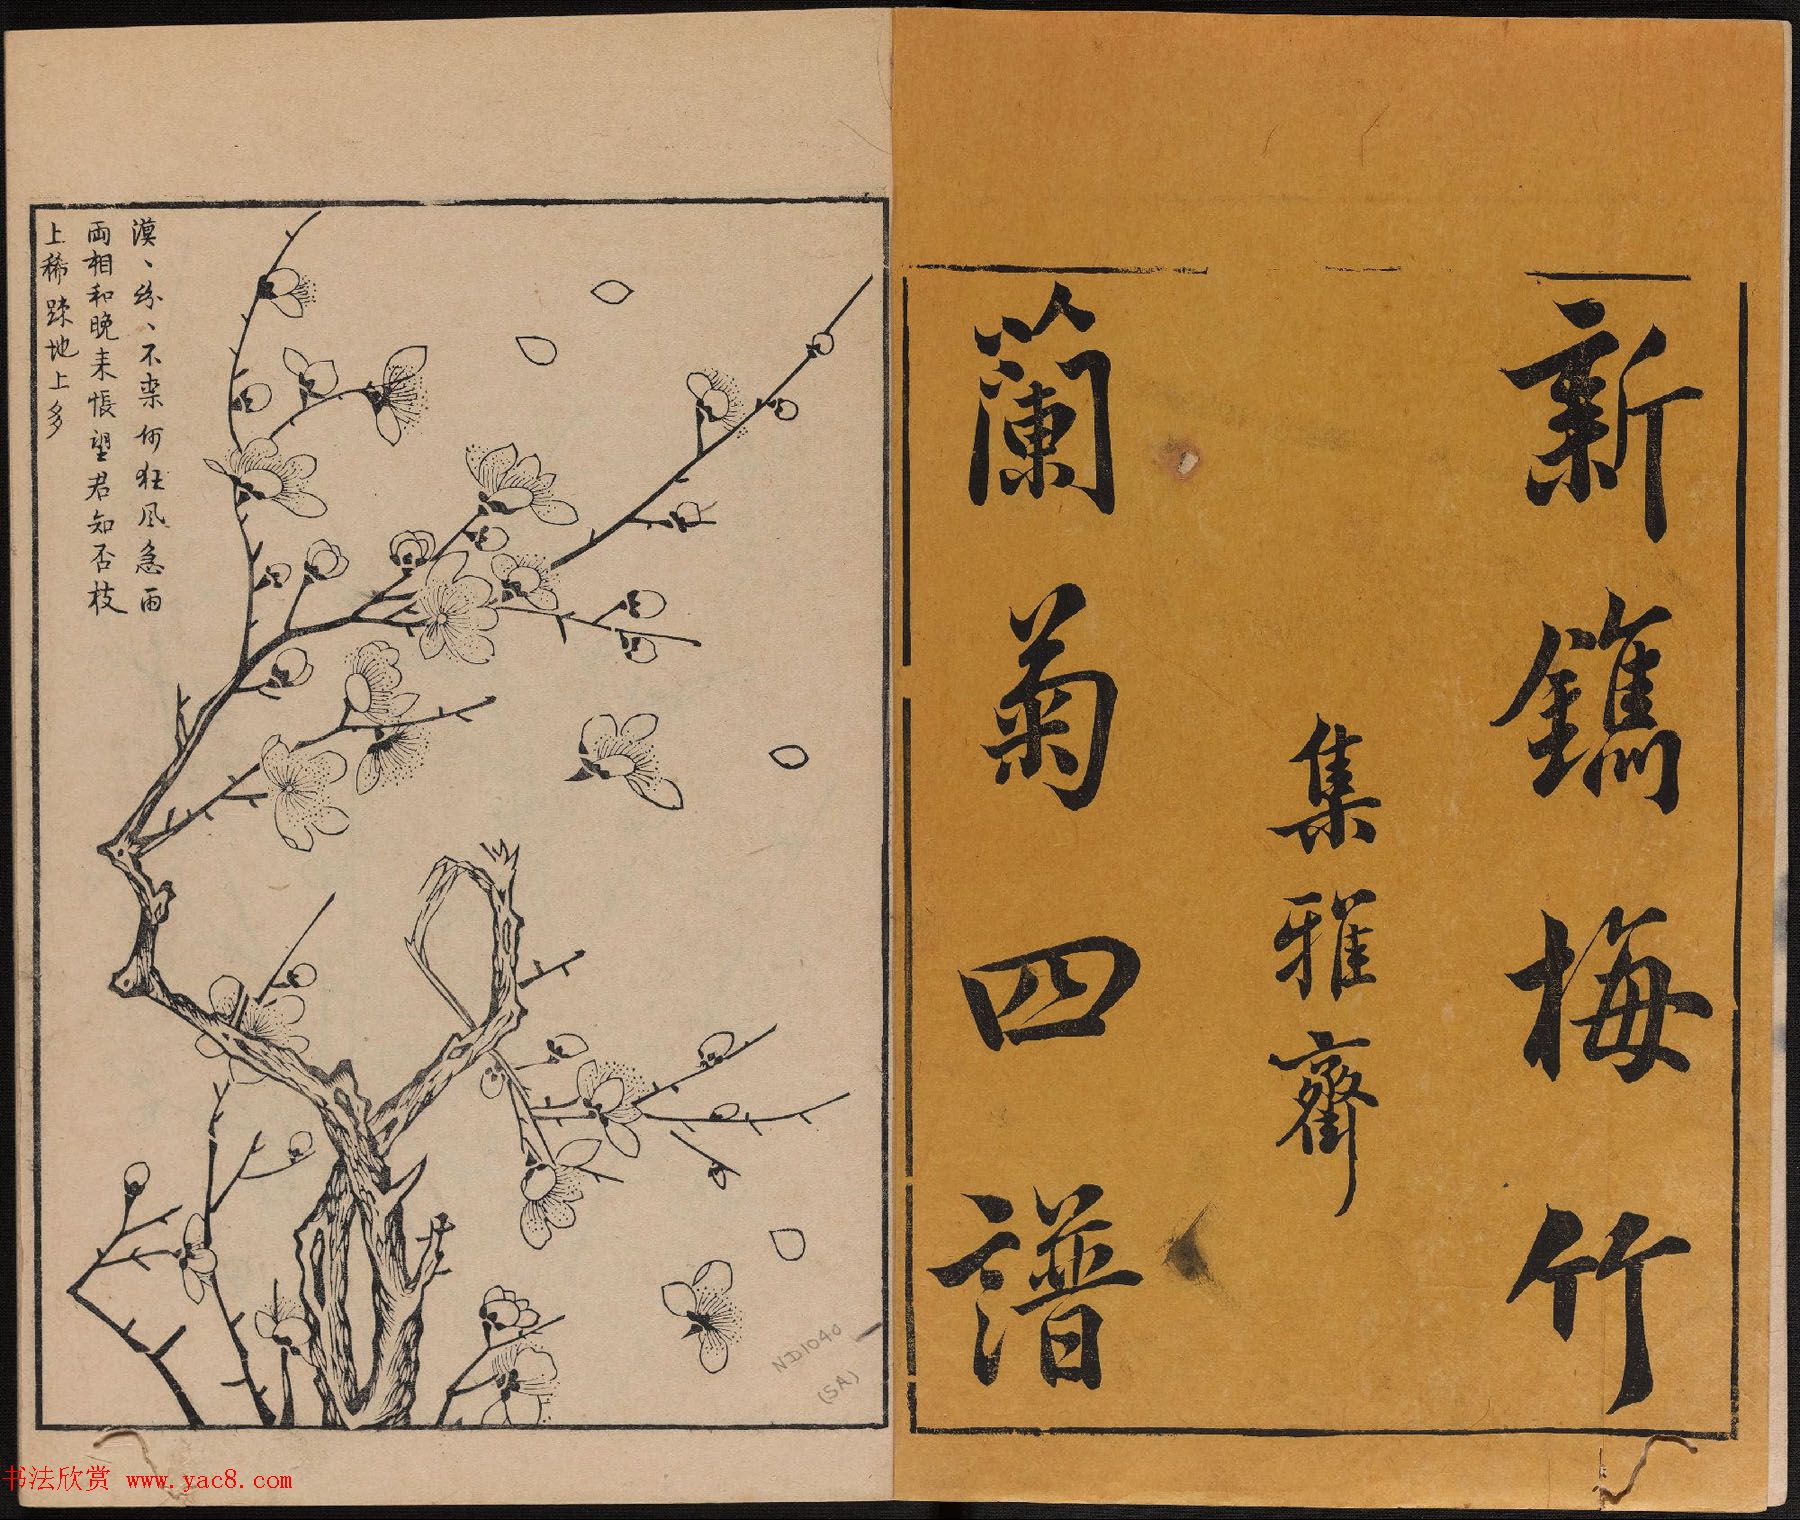 新鐫梅竹
集雅齋
蘭菊四譜
漠、紛、不柰何狂風急雨
兩相和晚来悵望君知否枝
上稀踈地上多
ND1040
(SA)
书法欣赏 www.yac8.com